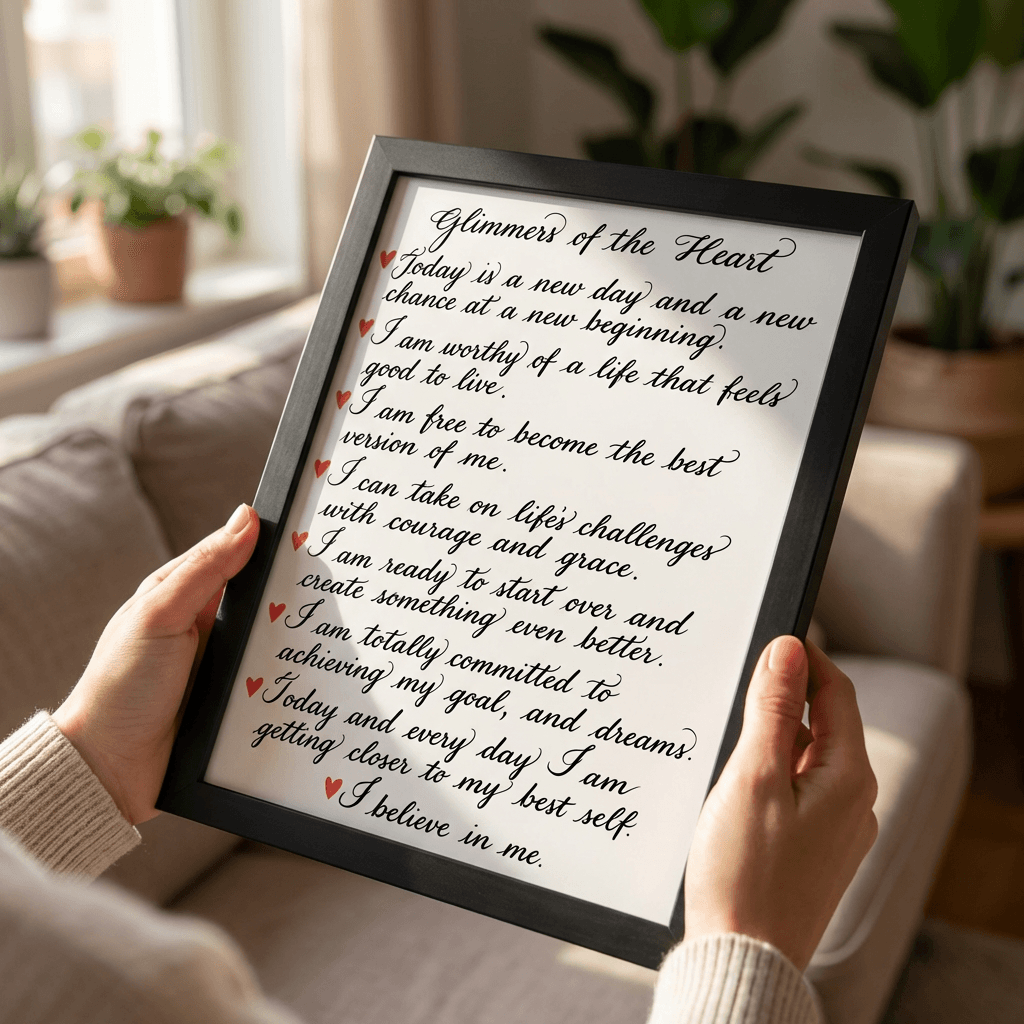 Glimmers of the Heart
Today is a new day and a new
chance at a new beginning.
I am worthy of a life that feels
good to live.
I am free to become the best
version of me.
I can take on life's challenges
with courage and grace.
I am ready to start over and
create something even better.
I am totally committed to
achieving my goal, and dreams.
Today and every day I am
getting closer to my best self.
I believe in me.